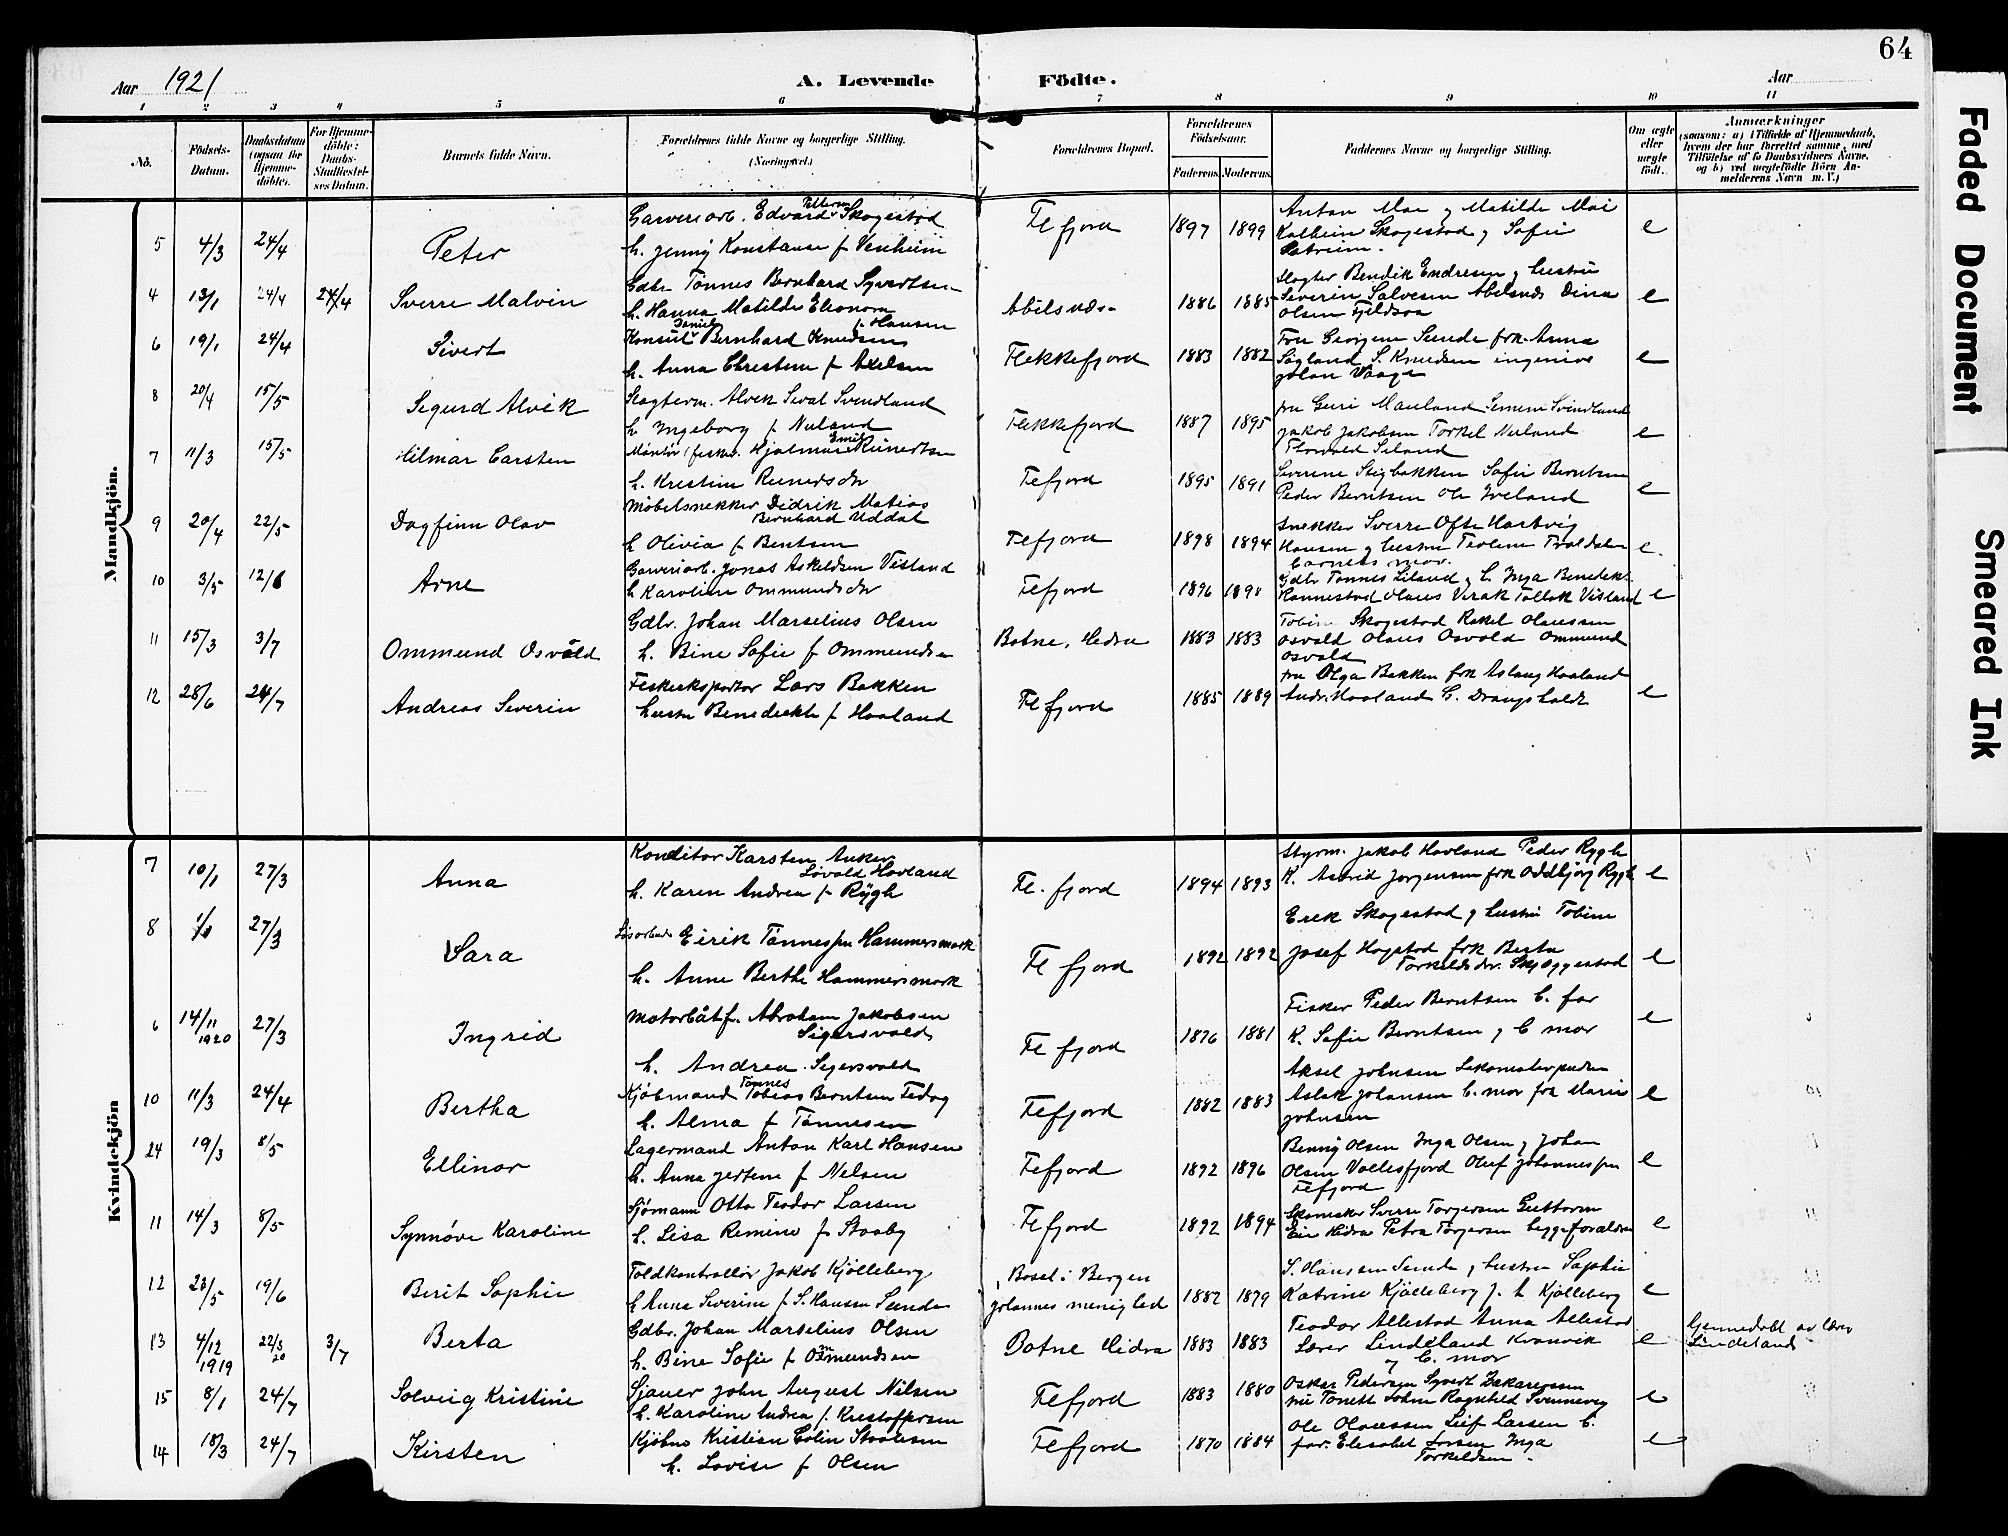 64
Aar 1921
A. Levende Födte.
Aar
1 2 3 4 5 6 7 8 9 10 11
No.
Födsels-Datum.
Daabsdatum (ogsaa for Hjemme-döbte).
For Hjemme-döbte: Daabs-Stadfæstel-ses Datum.
Barnets fulde Navn.
Forældrenes fulde Navne og borgerlige Stilling.
(Næringsvei.)
Forældrenes Bopæl.
Forældrenes Födselsaar.
Faderens. Moderens.
Faddernes Navne og borgerlige Stilling.
Om ægte eller uægte födt.
Anmærkninger
(saasom: a) i Tilfælde af Hjemmedaab, hvem der har forrettet samme, med Tilföielse af to Daabsvidners Navne, og b) ved uægtefödte Börn An-melderens Navn m. V.)
Mandkjön.
5 4/3 24/4 Peter
Garveriarb. Edvard Skogestad
h. Jenny Konstanse f Venheim
Fl fjord 1897 1899
Anton Moe og Matilde Moi
Kolbein Skogestad og Sofie
e
4 13/1 24/4 24/4 Sverre Malvin
Gdbr Tönnes Bernhard Syvertsen
h. Hanna Matilde Elionora
f Hansen
Abelsnes 1886 1885
Slagter Bendik Endresen og hustru
Severin Salvesen Abelsnes Dina
Olsen Fjeldsaa
e
6 19/1 24/4 Sivert
Konsul Daniel Bernhard Knudsen
h. Anna Christene f Axelsen
Flekkefjord 1883 1882
Fru Georgene Sunde frk Anna
S. Knudsen ingeniør
Johan Vaage
e
8 20/4 15/5 Sigurd Alvik
Slagterm. Alvik Sival Svindland
h Ingeborg f Nuland
Flekkefjord 1887 1895
fru Guri Mauland Svindland
Jakob Jakobsen Torkel Nuland
Thorvald Seland
e
7 11/3 15/5 Hilmar Carsten
Hjalmar Emil Reinertsen
h. Kristine Reinersdtr
Fefjord 1895 1891
Severine Stigbakken Sofie Berntsen
Peder Berntsen Ole Iveland
e
9 20/4 22/5 Dagfinn Olav
Møbelsnekker Didrik Matias
Bernhard Uddal
h Olivia f Bentsen
Flefjord 1898 1894
Snekker Sverre Ofte Hartvig
Hansen og hustru Teoline Troldalen
barnets mor.
e.
10 3/5 12/6 Arne
Garveriarb. Jonas Askeldsen Visland
h Karoline Ommundsdtr
Fefjord 1896 1898
Gdbr Tønnes Liland og h. Inga Benedikte
Rannestad Olaus Virak Tollak Visland
e
11 15/3 3/7 Ommund Osvald
Gdbr. Johan Marselius Olsen
h. Bine Sofie f Ommundsen
Botne, Hidra 1883 1883
Tobine Skogestad Rakel Olaussen
Osvald Olaus Osvold Ommund
Osvald
12 28/6 24/7 Andreas Severin
Fiskeeksportør Lars Bakken
hustru Benedickte f Haaland
Fl fjord 1885 1889
fru Olga Bakken frk Aslaug Haaland
Andr. Haaland C. Drangsholdt
e
Kvindekjön
7 10/1 27/3 Anna
Konditor Karsten Anker
Lovald Hovland
h. Karen Andrea f. Rygh
Fl. fjord 1894 1893
Styrm. Jakob Hovland Peder Rygh
K. Astrid Jørgensen frk Oddbjørg Rygh
e
8 27/3 Sara
Eirik Tønnessen Hammersmark
h. Anne Berthe Hammersmark
Fl fjord 1892 1892
Erik Skogestad og hustru Tobine
Josef Hogstad frk Berta
Torkeldsdtr. Skjeggestad
e
6 14/11 1920 27/3 Ingrid
Motorbåtf. Abraham Jakobsen
Sigersvold
h. Andrea Sigersvold
Fl fjord 1876 1881
Fisker Peder Berntsen b. far
K. Sofie Berntsen og b mor
e
10 11/3 24/4 Bertha
Kjøbmand Tönnes Tobias Berntsen Fedog
h. Alma f Tönnesen
Flefjord 1882 1883
Aksel Johnsen
Aslak Johansen b. mor frk Marie
Johnsen
e
24 19/3 8/5 Ellinor
Lagermand Anton Karl Hansen
h. Anna Jertine f Nelsen
Fefjord 1892 1896
Benny Olsen Inga Olsen og Johan
Olsen Vollesfjord Oluf Johannessen
Fefjord
e
11 14/3 8/5 Synnøve Karoline
Sjømann Otto Teodor Larsen
h. Lisa Remine f. Staaby
Flefjord 1892 1894
Skomaker Sverre Torgersen Guttorm
Eie Hidra Petra Torgersen
e
12 23/5 19/6 Berit Sophie
Toldkontrollør Jakob Kjölleberg
h Anna Severine f S. Hansen Sunde
Bosat i Bergen
Johannes menighed 1882 1879
S. Hanssen Sunde og hustru Sophie
Katrine Kjölleberg J. h Kjölleberg
e
13 4/12 1919 22/3 20 3/7 Berta
Gdbr. Johan Marselius Olsen
h. Bine Sofie f Ommundsen
Botne Hidra 1883 1883
Teodor Allestad Anna Allestad
Lærer Lindeland Kvanvik
og b. mor
e
Hjemmedøbt av lærer
Lindeland
15 8/1 24/7 Solveig Kristine
Sjauer John August Nilsen
h. Karoline Andrea f. Kristoffersen
Fefjord 1883 1880
Oskar Pedersen Syvert Zakariassen
Ragnhild Svenneveg
e
14 18/3 24/7 Kirsten
Kjøbm Kristian Colin Staalesen
h. Lovise f Olsen
Flefjord 1870 1884
Ole Olaussen Leif Larsen b.
far. Elisabet Larsen Inga
Torkeldsen.
e
Faded Document
Smeared Ink